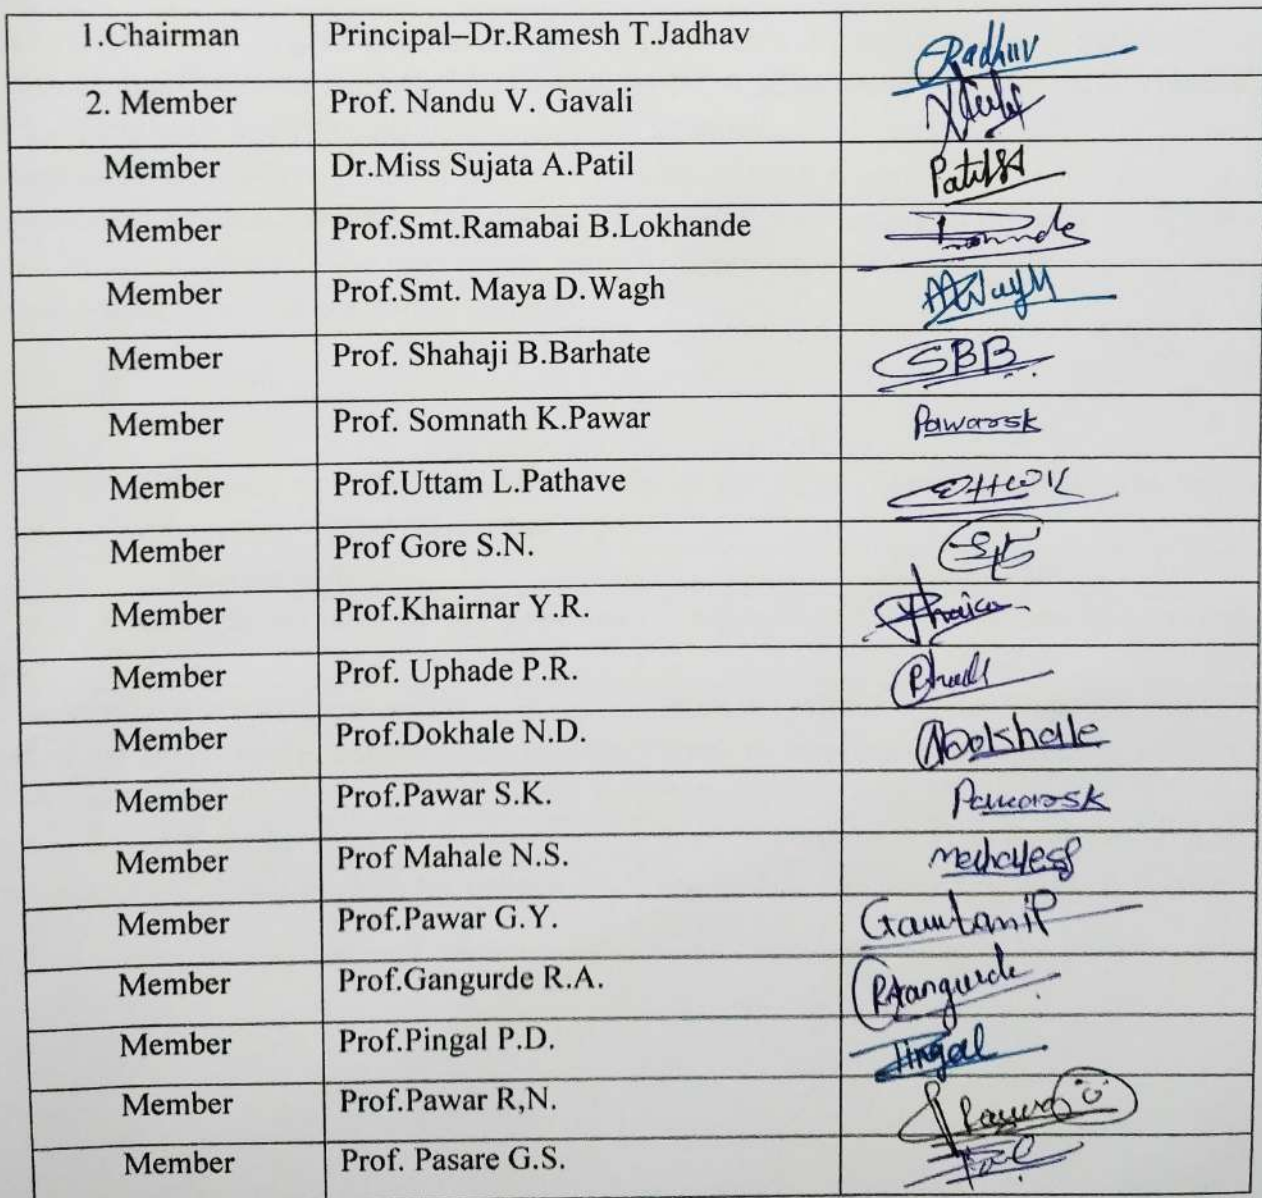 1.Chairman Principal–Dr.Ramesh T.Jadhav
2. Member Prof. Nandu V. Gavali
Member Dr.Miss Sujata A.Patil PatilSA
Member Prof.Smt.Ramabai B.Lokhande
Member Prof.Smt. Maya D.Wagh
Member Prof. Shahaji B.Barhate SBB
Member Prof. Somnath K.Pawar Pawarsk
Member Prof.Uttam L.Pathave
Member Prof Gore S.N.
Member Prof.Khairnar Y.R.
Member Prof. Uphade P.R.
Member Prof.Dokhale N.D. NDokhale
Member Prof.Pawar S.K. Pawarsk
Member Prof Mahale N.S.
Member Prof.Pawar G.Y.
Member Prof.Gangurde R.A. RAGangurde
Member Prof.Pingal P.D. Pingal
Member Prof.Pawar R,N.
Member Prof. Pasare G.S.